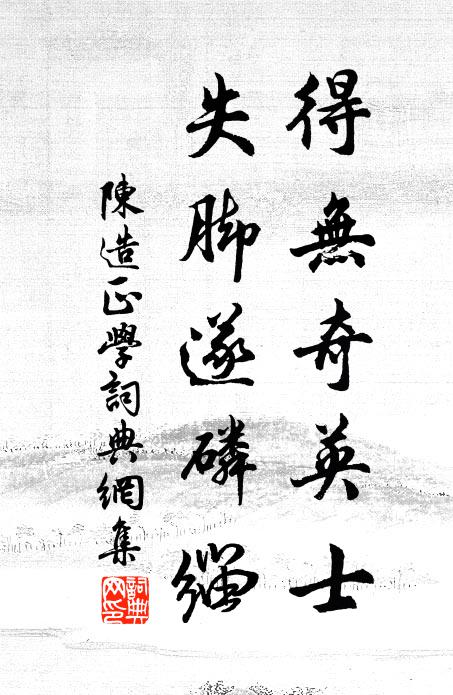 得無奇英士
失脚遂磷緇
陳造正學詞典網集
詞典網印